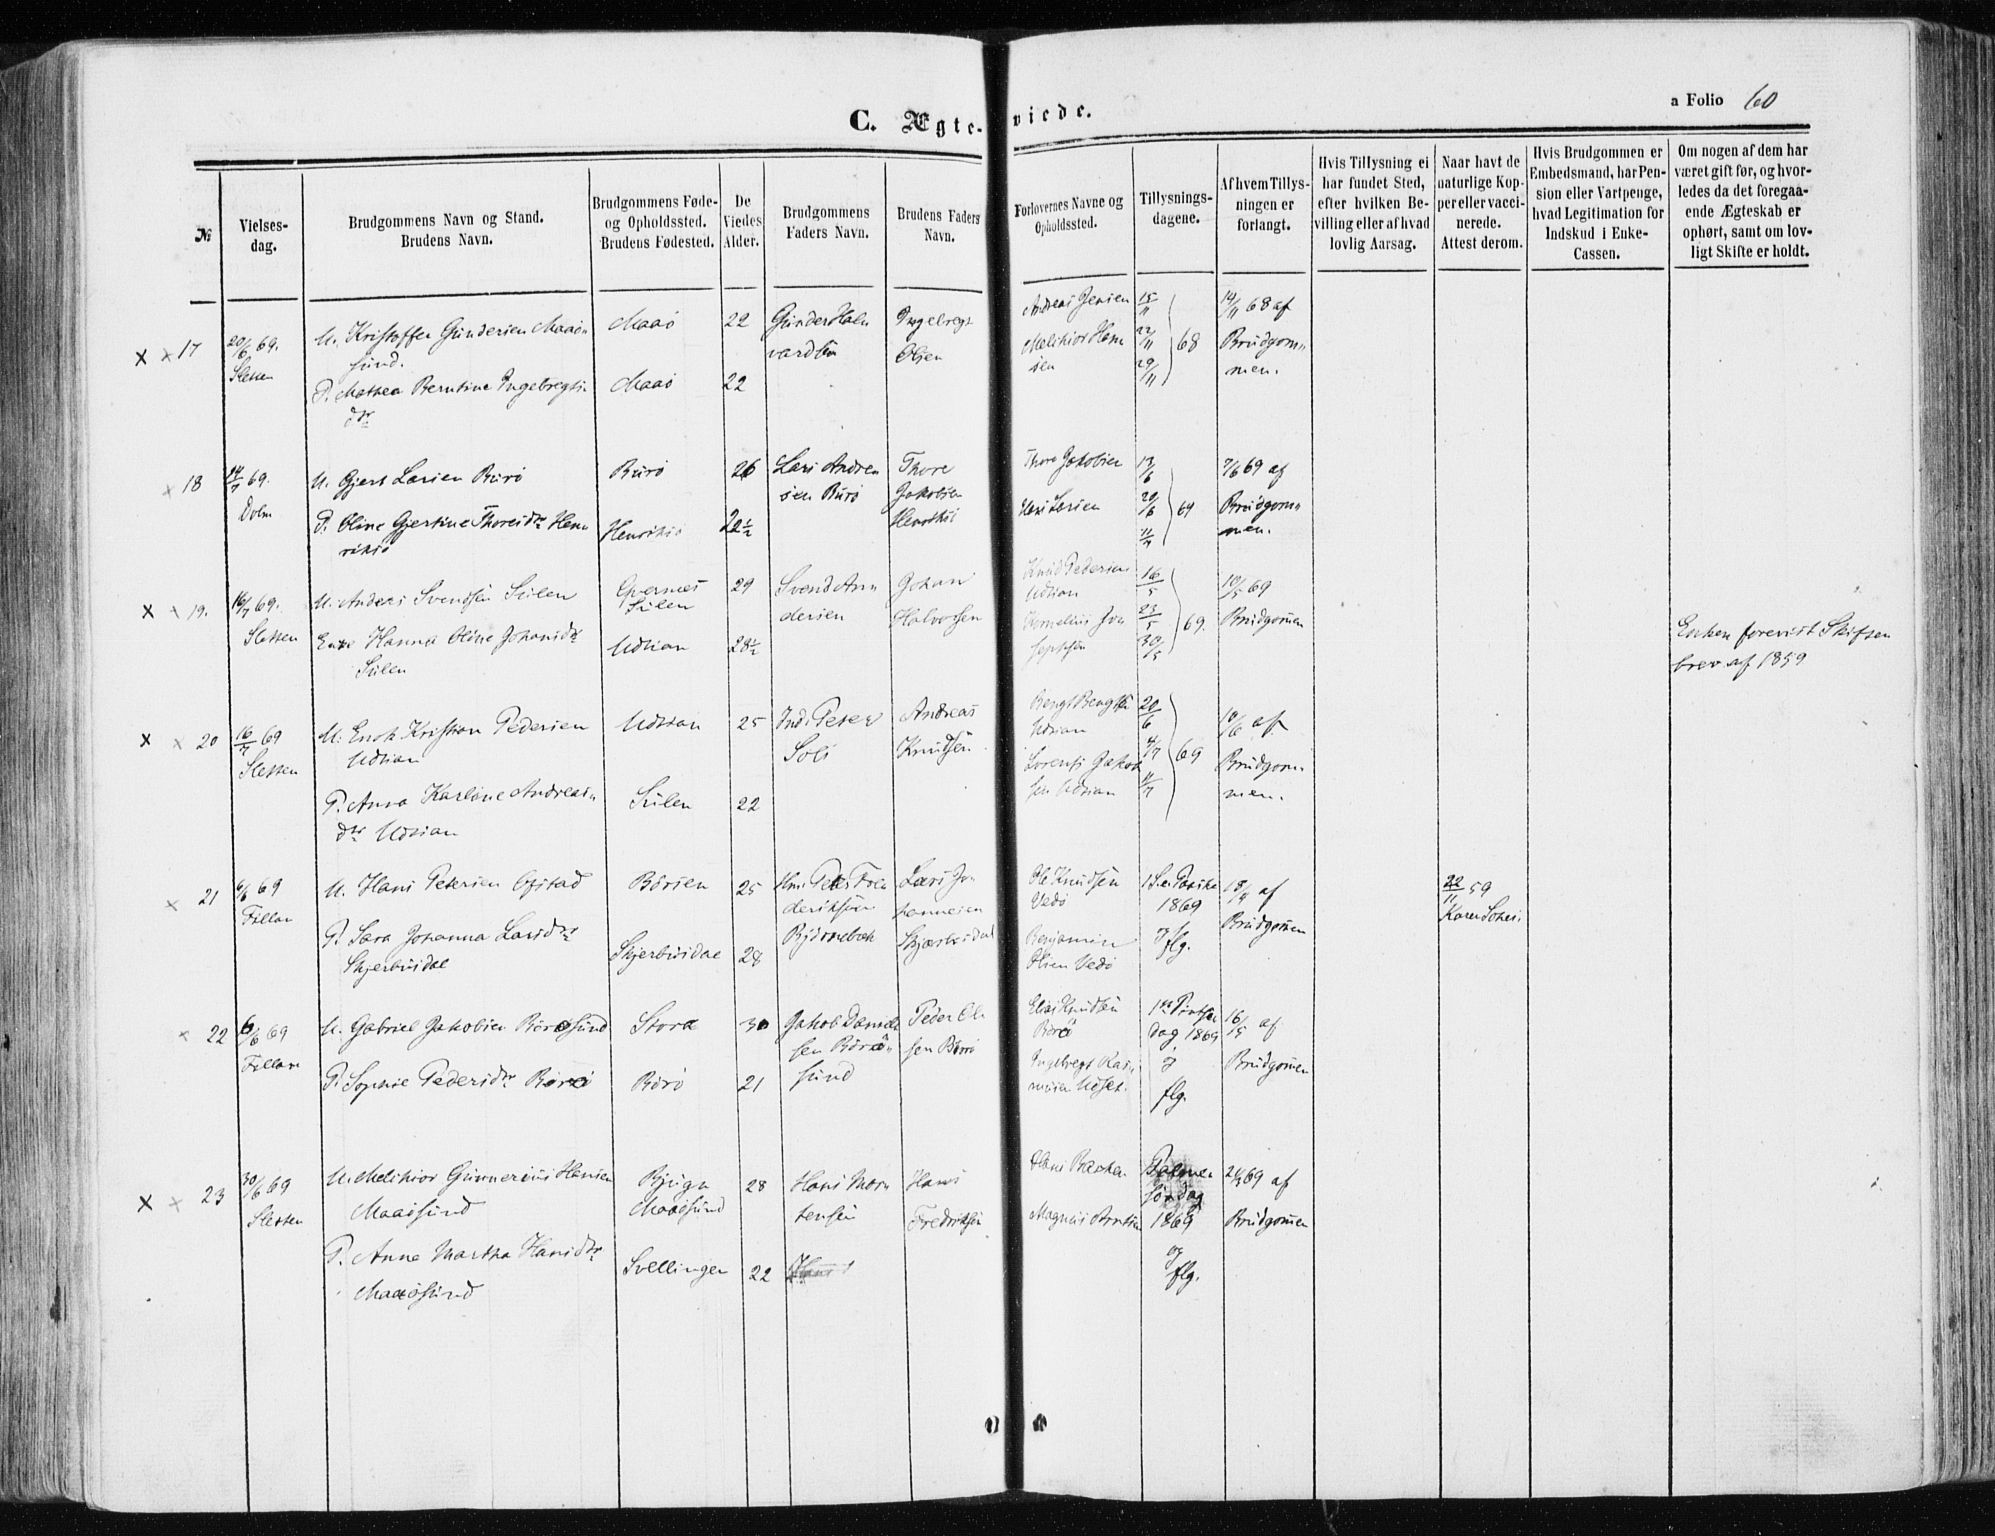 a Folio 60
C. Ægte- viede.
№
Vielses-
dag.
Brudgommens Navn og Stand.
Brudens Navn.
Brudgommens Føde-
og Opholdssted.
Brudens Fødested.
De
Viedes
Alder.
Brudgommens
Faders Navn.
Brudens Faders
Navn.
Forlovernes Navne og
Opholdssted.
Tillysnings-
dagene.
Af hvem Tillys-
ningen er
forlangt.
Hvis Tillysning ei
har fundet Sted,
efter hvilken Be-
villing eller af hvad
lovlig Aarsag.
Naar havt de
naturlige Kop-
per eller vacci-
nerede.
Attest derom.
Hvis Brudgommen er
Embedsmand, har Pen-
sion eller Vartpenge,
hvad Legitimation for
Indskud i Enke-
Cassen.
Om nogen af dem har
været gift før, og hvor-
ledes da det foregaa-
ende Ægteskab er
ophørt, samt om lov-
ligt Skifte er holdt.
x x 17
20/6 69.
Sletten
U. Kristoffer Gundersen Maasø
sund.
P. Mathea Berntine Ingebregts
dtr
Maasø
Maasø
22
22
Gunder Hal
vardsen
Ingebregt
Olsen
Andreas Jensen
Melkior Han
sen
15/11
22/11
29/11
68
14/11 68 af
Brudgom
men.
x 18
14/7 69.
Dolm
U. Gjert Larsen Burø
P. Oline Gjertine Thoresdtr Hen
riksø
Burø
Henriksø
26
22½
Lars Andrea
sen Burø
Thore
Jakobsen
Henriksø
Thore Jakobsen
Hans Larsen
13/6
20/6
11/7
69
7/6 69 af
Brudgom
men.
x x 19.
16/7 69.
Sletten
U. Anders Svendsen Sulen
Enke Hanna Oline Johansdtr
Sulen
Sulen
Udsian
29
28½
Svend An
dersen
Johan
Halvorsen
Knud Pedersen
Udsian
Kornelius Jo
sephsen
16/5
23/5
30/5
69.
10/5 69
Brudgommen
Enken forevist Skifte
brev af 1859
x x 20
16/7 69
Sletten
U. Enok Kristian Pedersen
Udsian
P. Anna Karline Andreas
dtr Udsian
Udsian
Sulen
25
22
Ind. Peter
Soli
Andreas
Knudsen
Bengt Bengtsen
Udsian
Lorents Jakob
sen Udsian
20/6
4/7
11/7
69
10/6 af
Brudgom
men.
x 21
6/6 69
Fillan
U. Hans Petersen Ofstad
P. Sara Johanna Larsdtr
Skjerbusdal
Børsen
Skjerbusdal
25
28
Hm. Peter Fre
deriksen
Bjørnebek
Lars Jo
hannesen
Skjærbusdal
Ole Knudsen
Vedø
Benjamin
Olsen Vedø
1 S. e. Paaske
1869
og
flg.
18/4 af
Brudgommen
22/11 59
x 22
6/6 69
Fillan
U. Gabriel Jakobsen Børøsund
P. Sophie Pedersdtr Børø
Storø
Børø
30
21
Jakob Daniel
sen Børø
sund
Peder Ol
sen Børø
Elias Knudsen
Børø
Ingebregt Ras
musen Udset.
1ste Pintse
dag 1869
og
flg.
16/5 af
Brudgommen
x x 23
30/6 69
Sletten
U. Melkior Gunnerius Hansen
Maasøsund
P. Anne Martha Hansdtr
Maasøsund
Bjugn
Maasøsund
Svellingen
28
22
Hans Mor
tensen
Hans
Fredriksen
Hans Bache
Magnus Arntsen
Palme
søndag
1869
og
flg.
2/3 69 af
Brudgommen